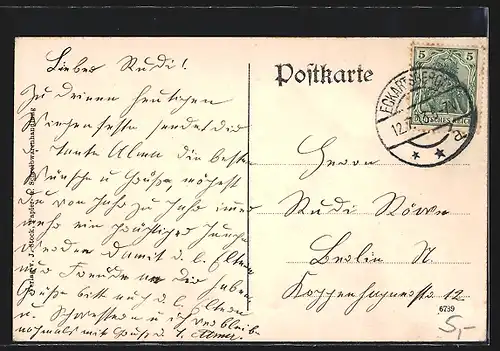 Lieber Rudi!
Zu deinen heutigen
Wiegenfeste sendet dir
Tante Alma die besten
Wünsche u Grüße, mögest
du von Jahr zu Jahr immer
mehr ein prächtiger Junge
werden damit d. l. Eltern
Freude an dir haben
Grüße bitte auch d. l. Eltern
u. Schwestern u ich verbleibe
nochmals mit Gruß d. T. Alma.
Verlag v. J. Stock, Papier- u. Schreibwarenhandlung
Postkarte
5 5
DEUTSCHES REICH
ECKARTSBERGA
12.7.
Herrn
Rudi Röwer
Berlin N
Koppenhagenerstr 12
6739
5,-